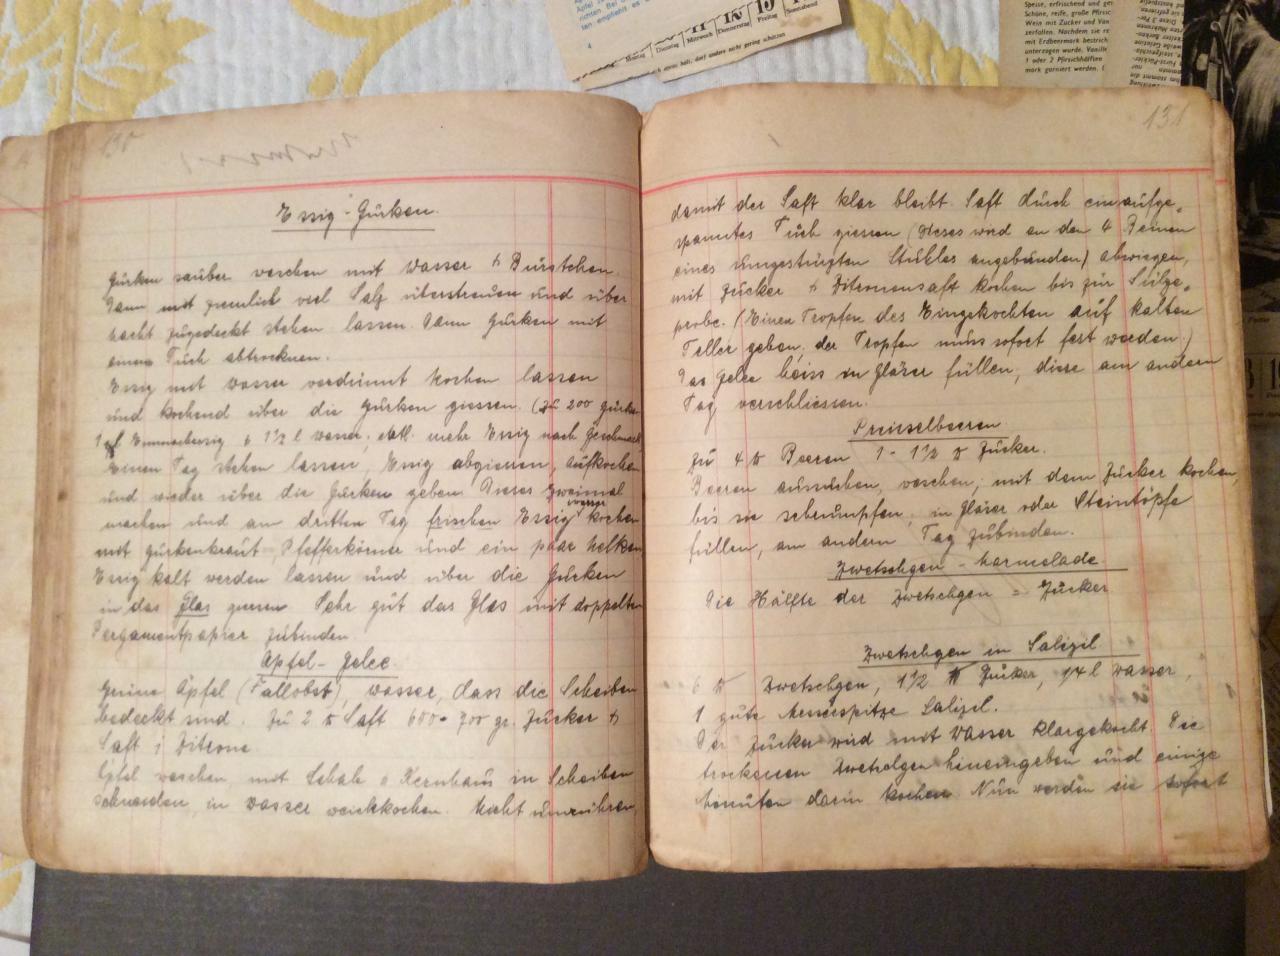 130
Essig-Gurken.
Gurken sauber waschen mit Wasser & Bürstchen.
Dann mit ziemlich viel Salz überstreuen und über
Nacht zugedeckt stehen lassen. Dann Gurken mit
einem Tuch abtrocknen.
Essig mit Wasser verdünnt kochen lassen
und kochend über die Gurken giessen. (Zu 200 Gurken
1 l Einmachessig & 1 1/2 l Wasser, evtl. mehr Essig nach Geschmack
Einen Tag stehen lassen, Essig abgiessen, aufkochen
und wieder über die Gurken geben. Dieses zweimal
machen und am dritten Tag frischen Essig wasser kochen
mit Gurkenkraut, Pfefferkörner und ein paar Nelken
Essig kalt werden lassen und über die Gurken
in das Glas giessen. Sehr gut das Glas mit doppelten
Pergamentpapier zubinden.
Apfel-Gelee.
Grüne Äpfel (Fallobst), Wasser, dass die Scheiben
bedeckt sind. Zu 2 ℔ Saft 600-700 gr. Zucker &
Saft 1 Zitrone.
Äpfel waschen, mit Schale & Kernhaus in Scheiben
schneiden, in Wasser weichkochen. Nicht umrühren,
131
damit der Saft klar bleibt. Saft durch ein aufge-
spanntes Tuch giessen (dieses wird an den 4 Beinen
eines umgestürzten Stuhles angebunden) abwiegen,
mit Zucker & Zitronensaft kochen bis zur Sülze-
probe. (Einen Tropfen des Eingekochten auf kalten
Teller geben, der Tropfen muss sofort fest werden.)
Das Gelee heiss in Gläser füllen, diese am andern
Tag verschliessen.
Preiselbeeren
Zu 4 ℔ Beeren 1 - 1 1/2 ℔ Zucker.
Beeren aussuchen, waschen, mit dem Zucker kochen,
bis sie schrumpfen, in Gläser oder Steintöpfe
füllen, am andern Tag zubinden.
Zwetschgen-Marmelade
Die Hälfte der Zwetschgen = Zucker
Zwetschgen in Salizil
6 ℔ Zwetschgen, 1 1/2 ℔ Zucker, 1/4 l Wasser,
1 gute Messerspitze Salizil.
Der Zucker wird mit Wasser klargekocht. Die
trockenen Zwetschgen hineingeben und einige
Minuten darin kochen. Nun werden sie sofort
4
Dienstag
Mittwoch
Donnerstag
Freitag
Sonnabend